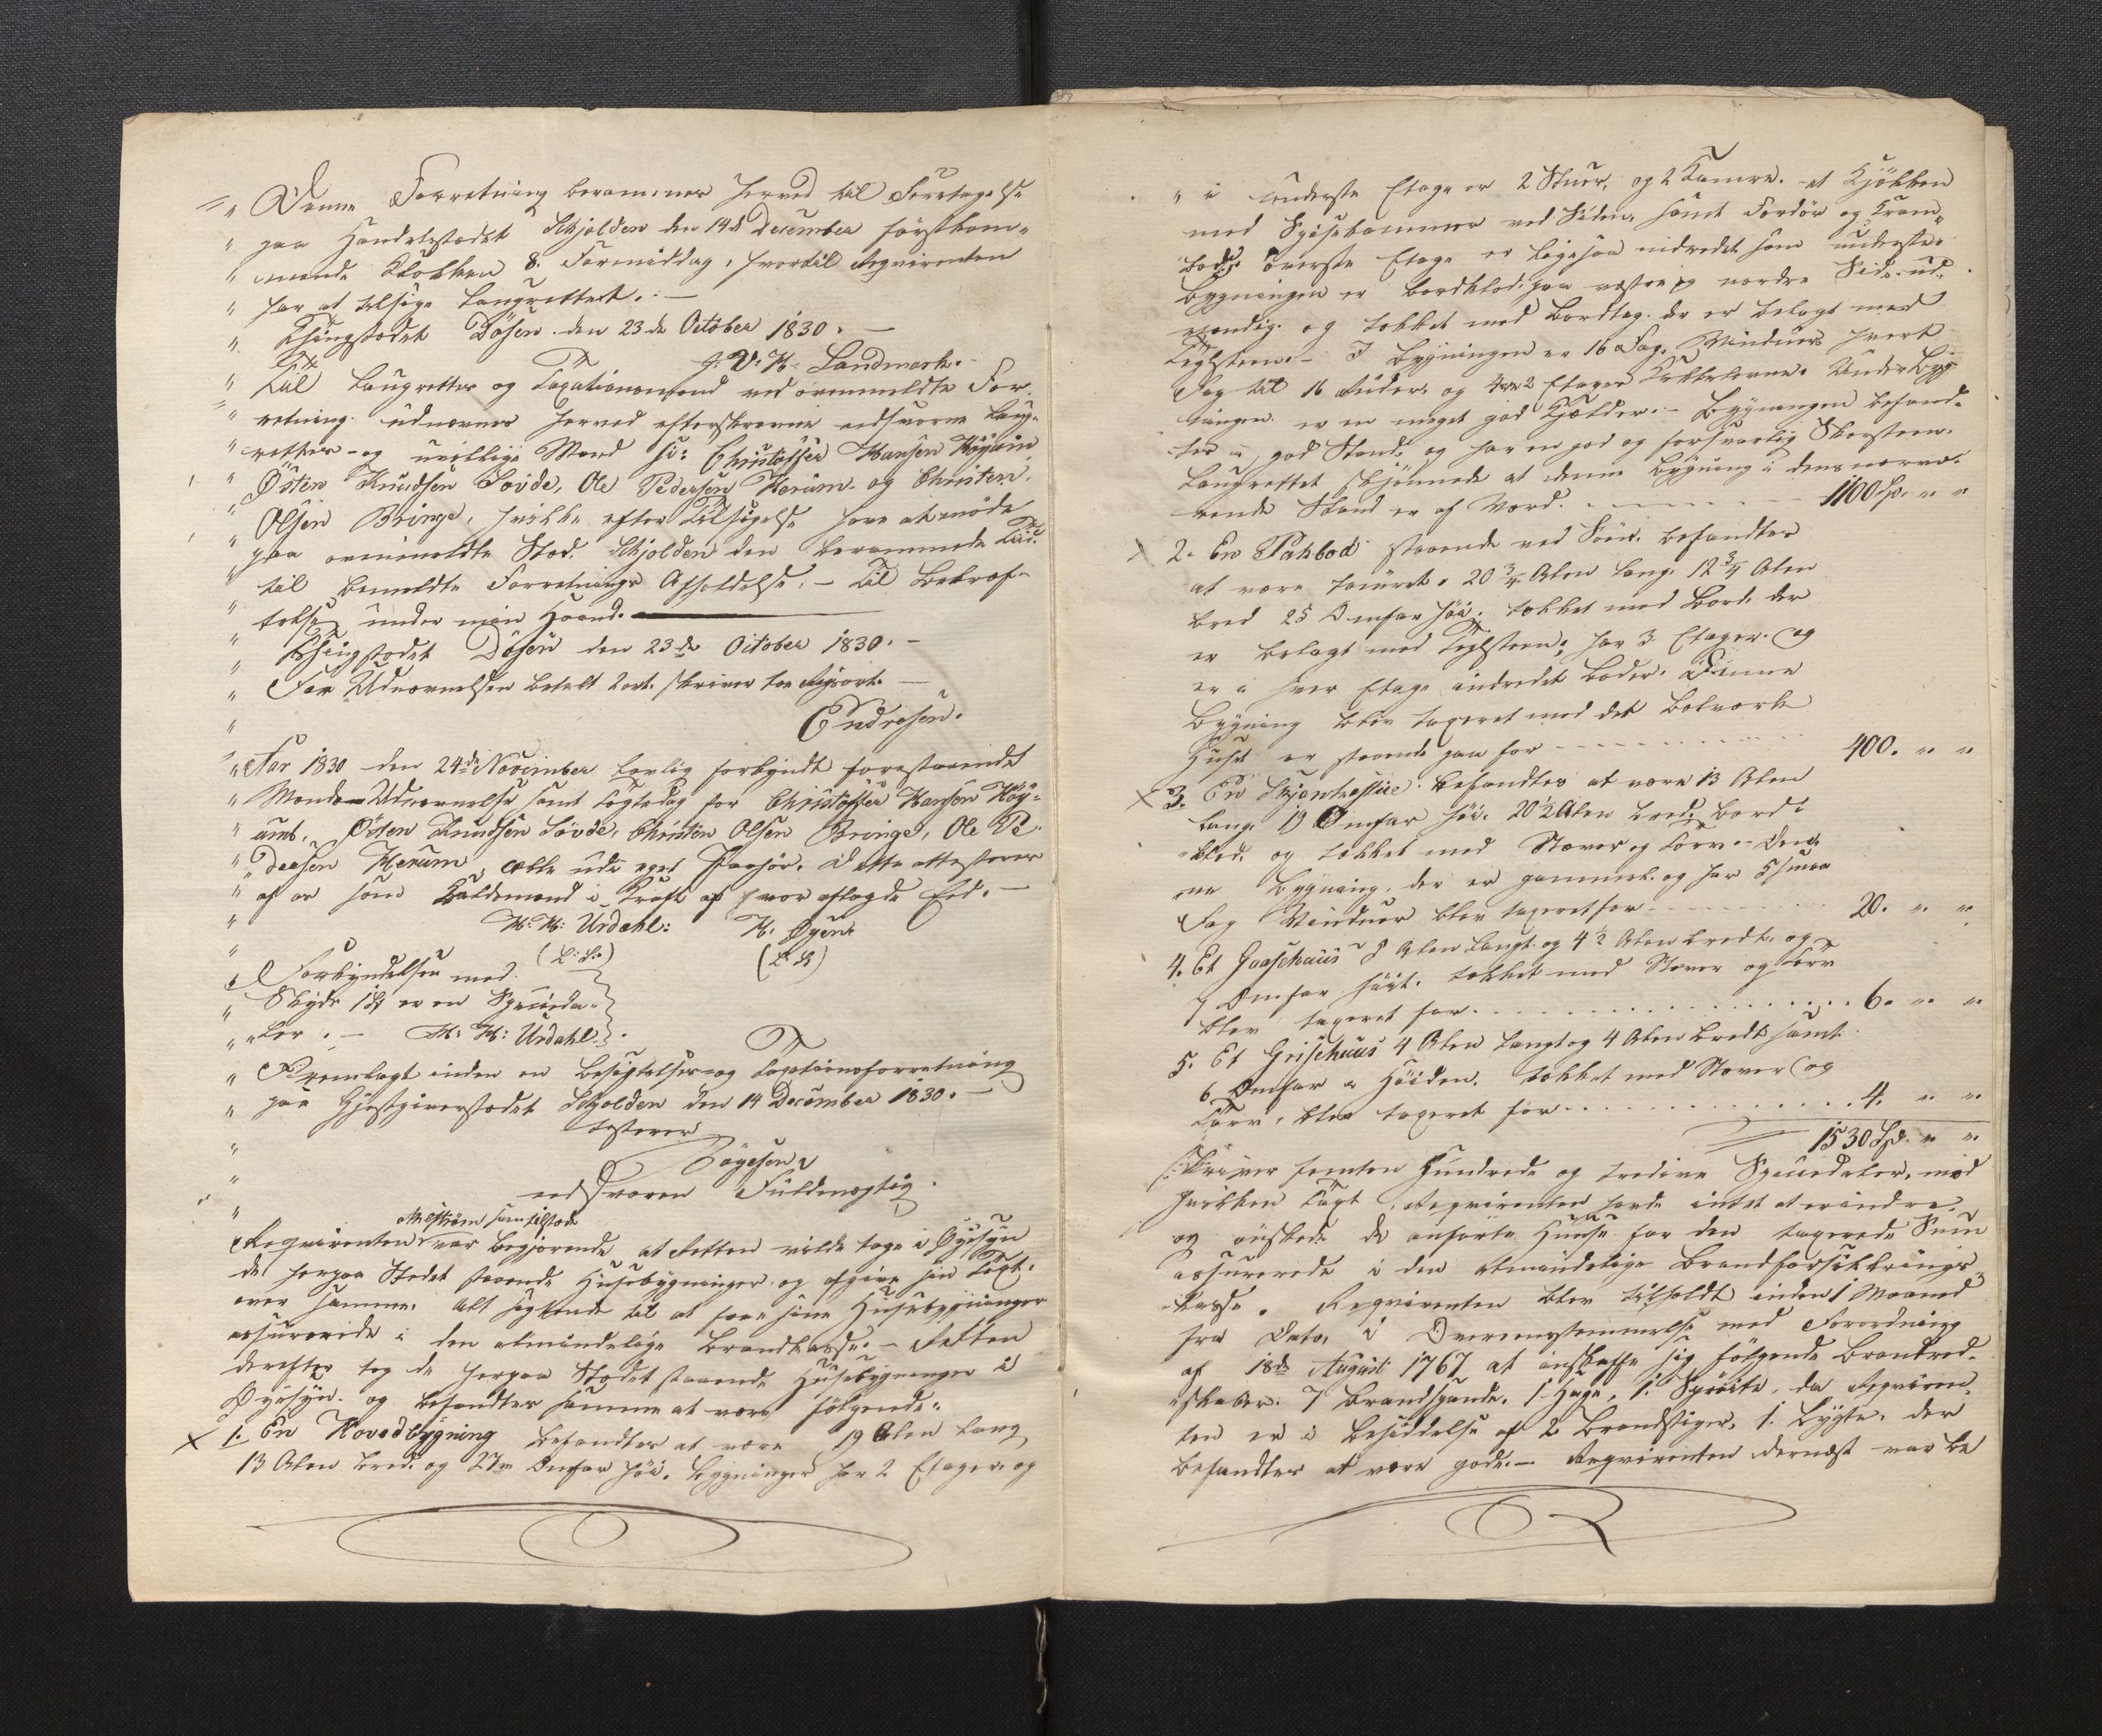 " Denne Forretning berammes herved til Foretagelse
" paa Handelstædet Skjolden den 14de December førstkom-
" mende Klokken 8. Formiddag, hvortil Reqvirenten
" har at tilsige Laugrettet. —
" Thingstædet Døsen den 23de October 1830. —
J. V. K. Landmark.
" Til Laugrettes og Taxationsmænd ved ovenmeldte For-
" retning udnævnes herved efterskrevne eedsvorne Laug-
" rettes- og uvillige Mænd so: Christoffer Hansen Høyum,
" Østen Knudsen Sovde, Ole Pedersen Herum og Christen
" Olsen Bringe, hvilke efter Tilsigelse have at møde
" paa ovenmeldte Stæd Skjolden den berammede Tiid
" til bemeldte Forretnings Afholdelse. — Til Bekræf-
" telse under min Haand.
" Thingstædet Døsen den 23de October 1830. —
" For Udnævnelsen betalt 2 ort. skriver toe Rigsort. —
" Endresen.
" Aar 1830 den 24de November lovlig forkyndt forestaaende
" Mænds Udnævnelse samt Tægtedag for Christoffer Hansen Høy-
" um, Østen Knudsen Sövde, Christen Olsen Bringe, Ole Pe-
" dersen Herum, alle udi eget Paahør. Dette attesterer
" af os som Kaldsmænd i Kraft af vor aflagde Eed. —
" H. H: Urdahl: K. Øyen
" (L: S:) (L: S)
" Forkyndelsen med
" Skyds 1 Sp er en Specieda-
" ler. — H: H: Urdahl.
" Fremlagt inden en Besigtelses- og Taxationsforretning
" paa Gjestgiverstædet Skjolden den 14 December 1830. —
" testerer
" Vøgesen
" eedsvoren Fuldmægtig.
Ahlstrøm som tilstede
Reqvirenten var begjærende at Retten vilde tage i Øyesyn
de herpaa Stedet staaende Huusebygninger og afgive sin Taxt
over samme. Alt sigtende til at faae sine Huusebygninger
assurerede i den almindelige Brandkasse. — Retten
derefter tog de herpaa Stædet staaende Huusebygninger i
Øyesyn og befandtes samme at være følgende.
1. En Hovedbygning befandtes at være 19 Alen lang
13 Alen bred og 27 Omfar høi. Bygningen har 2 Etager og
" i underste Etage er 2 Stuer, og 2 Kamre. et Kjøkken
med Spisekammer ved Siden, samt Fordør og Kram-
bod. øverste Etage er ligesaa indredet som underste.
Bygningen er bordklæd paa vestre og nordre Side ud-
vendig og tækket med Bordtag der er belagt med
Teglsteen. — I Bygningen er 16 Fag Vinduer hvert
Fag til 16 Ruder, og 2 Etages Kakkelovne. Under Byg-
ningen er en meget god Kjelder. — Bygningen befand-
tes i god Stand og har en god og forsvarlig Skorsteen.
Laugrettet skjønnede at denne Bygning i dens nærvæ-
rende Stand er af Værd. 1100 Sp. " "
2. En Pakbod staaende ved Søen. befandtes
at være tømret, 20 3/4 Alen lang, 12 3/4 Alen
bred 25 Omfar høi. tækket med Bord, der
er belagt med Teglsteen; har 3 Etager og
er i hver Etage indredet Boder. Denne
Bygning blev taxeret med det Bolværk
Huset er staaende paa for 400. " "
3. En befandtes at være 13 Alen
lang. 19 Omfar høi. 20 1/2 Alen bred. bord-
klæd. og tækket med Næver og Torv. — Den-
ne Bygning, der er gammel og har 5 smaa
Fag Vinduer blev taxeret for 20. " "
4. Et Gaaschuus 8 Alen langt. og 4 1/2 Alen bredt. og
7 Omfar høit. tækket med Næver og Torv
blev taxeret for 6. " "
5. Et Grischuus 4 Alen langt og 4 Alen bredt samt
6 Omfar i Høiden. tækket med Næver og
Torv, blev taxeret for 4. " "
1530 Sp. " "
skriver femten Hundrede og tredive Speciedaler, mod
hvilken Taxt Reqvirenten havde intet at erindre,
og ønskede de anførte Huuse for den taxerede Sum
assurerede i den almindelige Brandforsikkrings-
Kasse. Reqvirenten blev tilholdt inden 1 Maaned
fra Dato, i Overeensstemmelse med Forordning
af 18de August 1767 at anskaffe sig følgende Brandred-
skaber. 7 Brandspande, 1 Hage, 1 Sprøite, da Reqviren-
ten er i Besiddelse af 2 Brandstiger, 1. Lygte, der
befandtes at være gode. — Reqvirenten dernæst var be